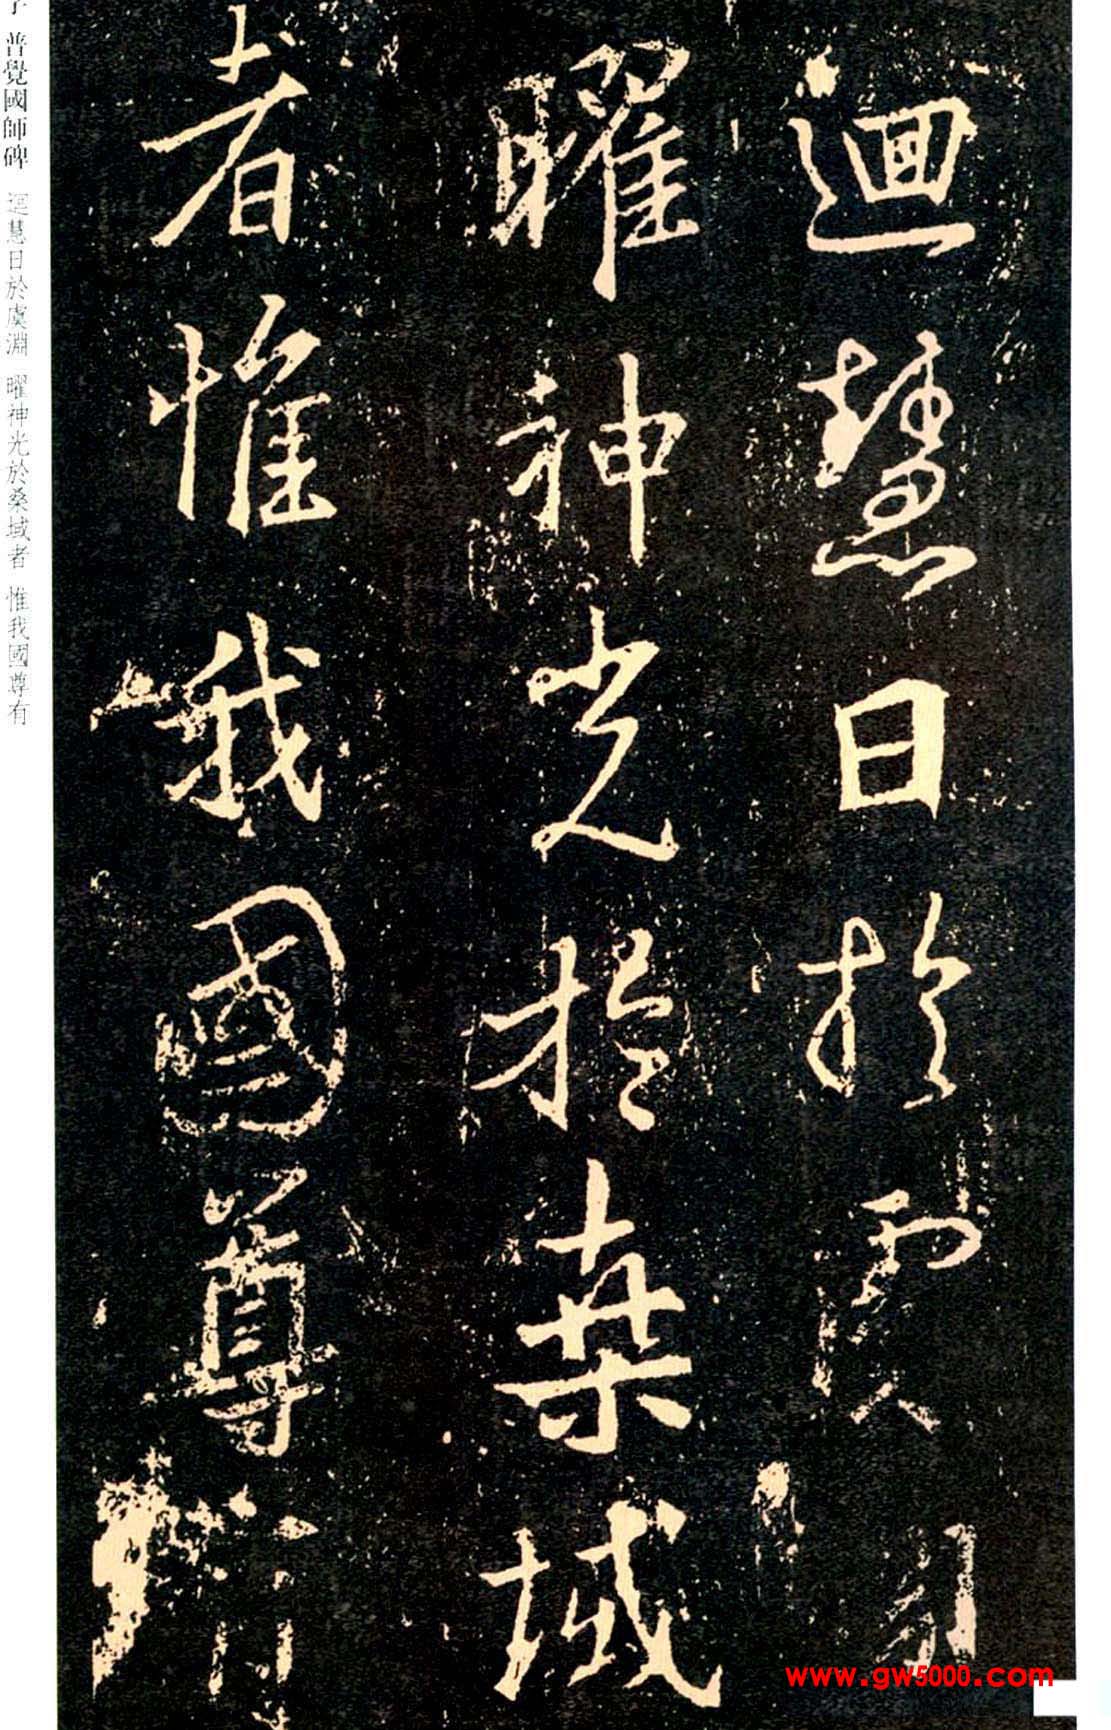 迴慧日於虞淵
曜神光於桑域
者惟我國尊有
普覺國師碑 迴慧日於虞淵 曜神光於桑域者 惟我國尊有
www.gw5000.com